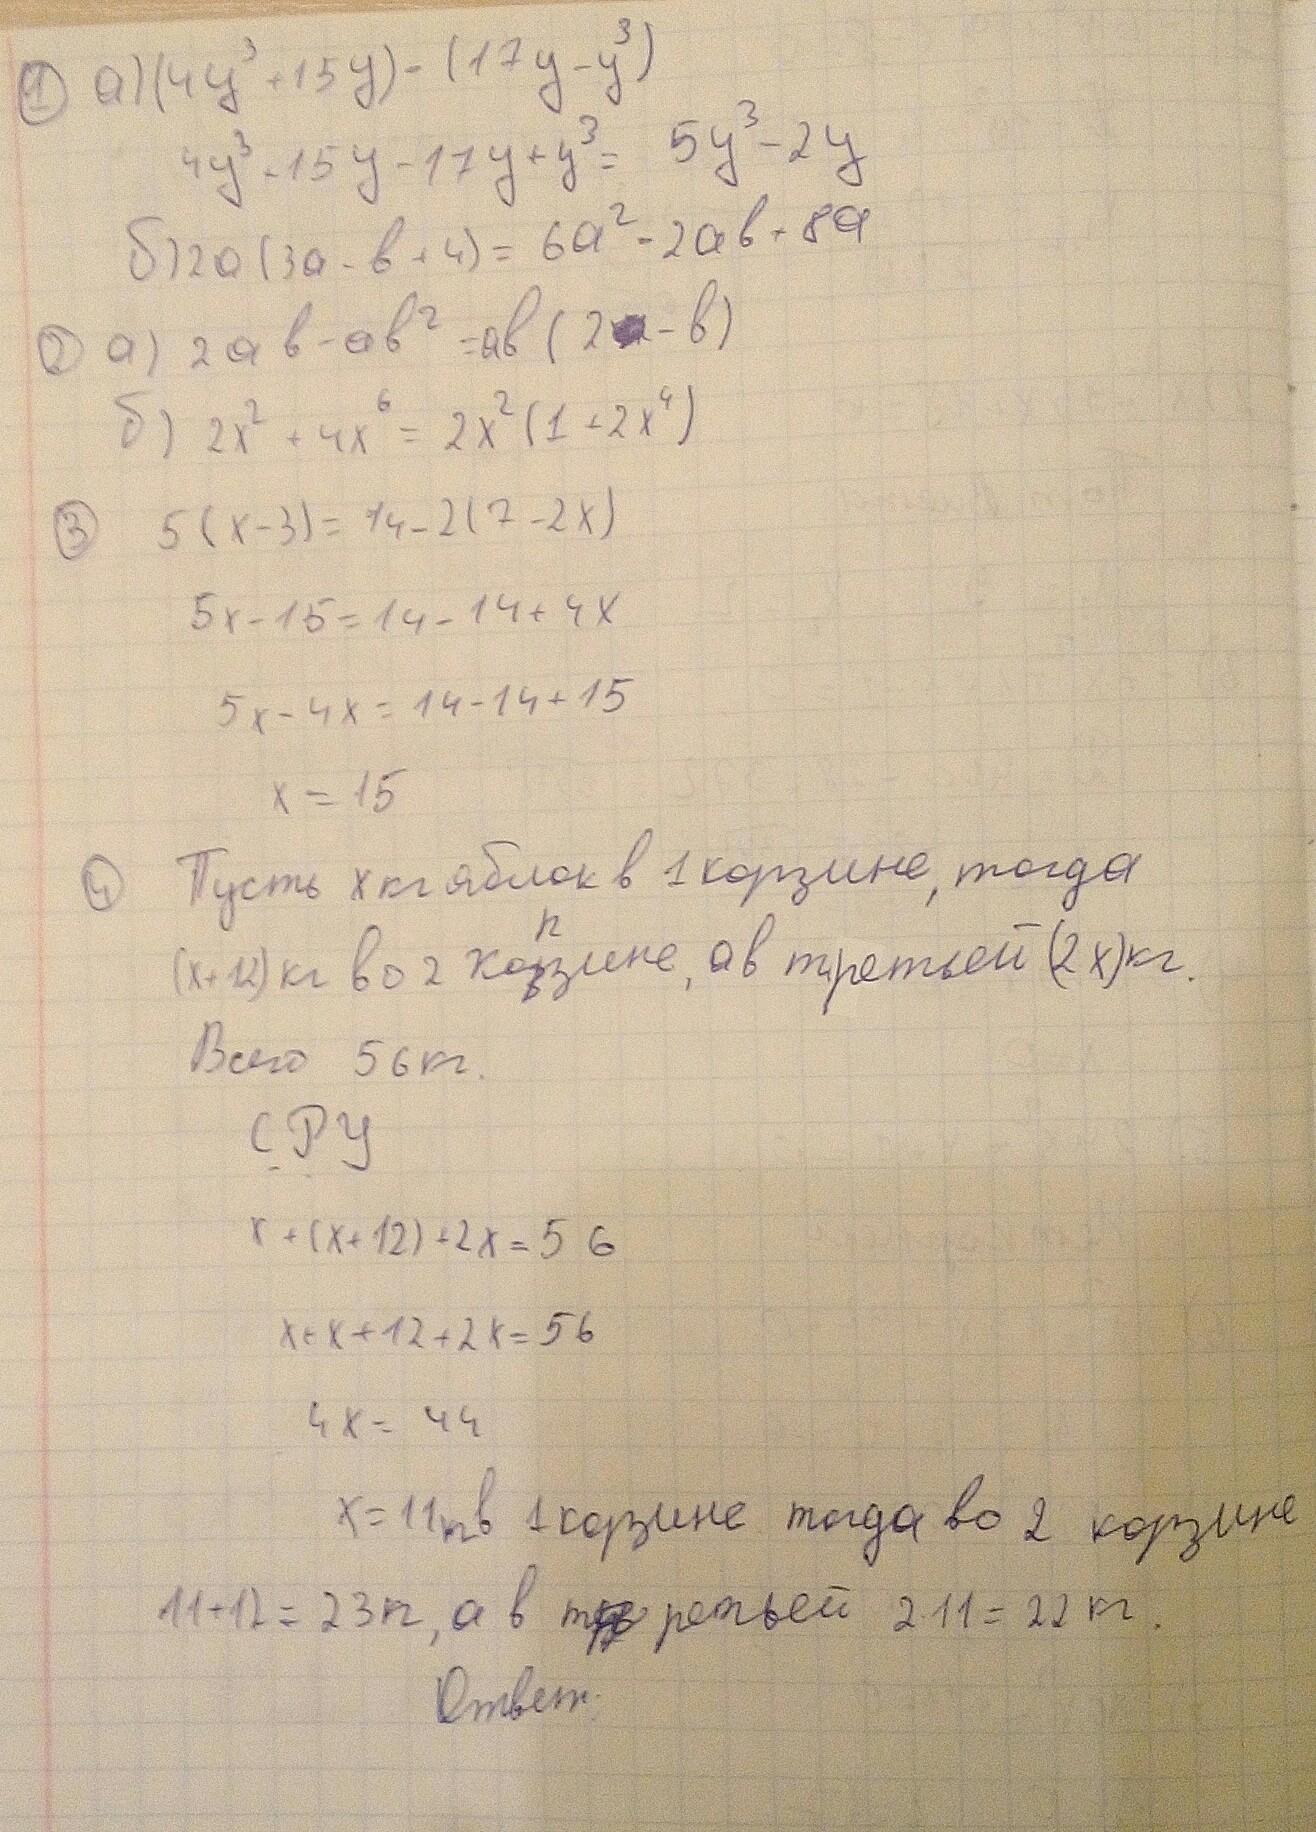 1 а) (4y³+15y)-(17y-y³)
4y³-15y-17y+y³= 5y³-2y
б) 2a(3a-b+4)= 6a²-2ab+8a
2 а) 2ab-ab²=ab(2-b)
б) 2x²+4x⁶=2x²(1+2x⁴)
3 5(x-3)=14-2(7-2x)
5x-15=14-14+4x
5x-4x=14-14+15
x=15
4 Пусть x кг яблок в 1 корзине, тогда
(x+12) кг во 2 корзине, а в третьей (2x) кг.
Всего 56 кг.
СРУ
x+(x+12)+2x=56
x+x+12+2x=56
4x=44
x=11 кг в 1 корзине тогда во 2 корзине
11+12=23 кг, а в третьей 2·11=22 кг.
Ответ: